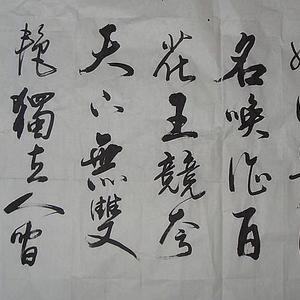 名喚作百
花王競夸
天下無雙
艷獨立人間